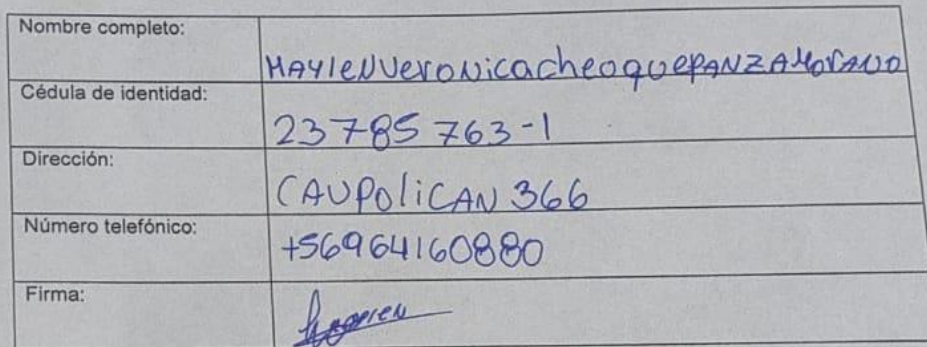 Nombre completo:
MAYIENVERONICAcheoquePANZAMORANO
Cédula de identidad:
23785763-1
Dirección:
CAUPOLICAN 366
Número telefónico:
+56964160880
Firma: